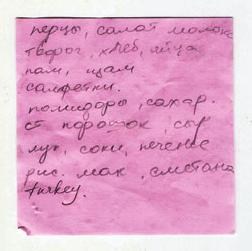 перцы, салат молоко
творог, хлеб, яйца
салфетки.
помидоры, сахар.
ст порошок, сыр
лук, соки, печенье
рис. мак, сметана
turkey.